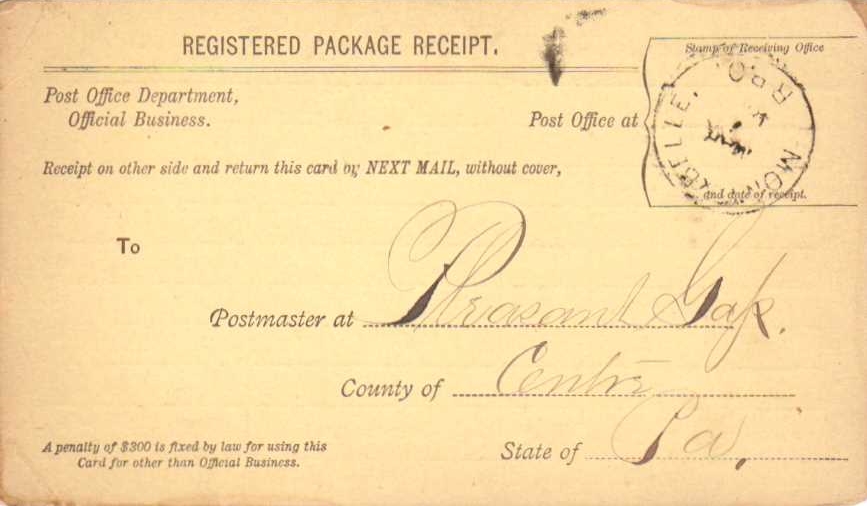 REGISTERED PACKAGE RECEIPT.
Stamp of Receiving Office
Post Office Department,
Official Business.
Post Office at
R.P.O.
Receipt on other side and return this card by NEXT MAIL, without cover,
and date of receipt.
To
Postmaster at Pleasant Gap.
County of Centre
State of Pa,
A penalty of $300 is fixed by law for using this
Card for other than Official Business.